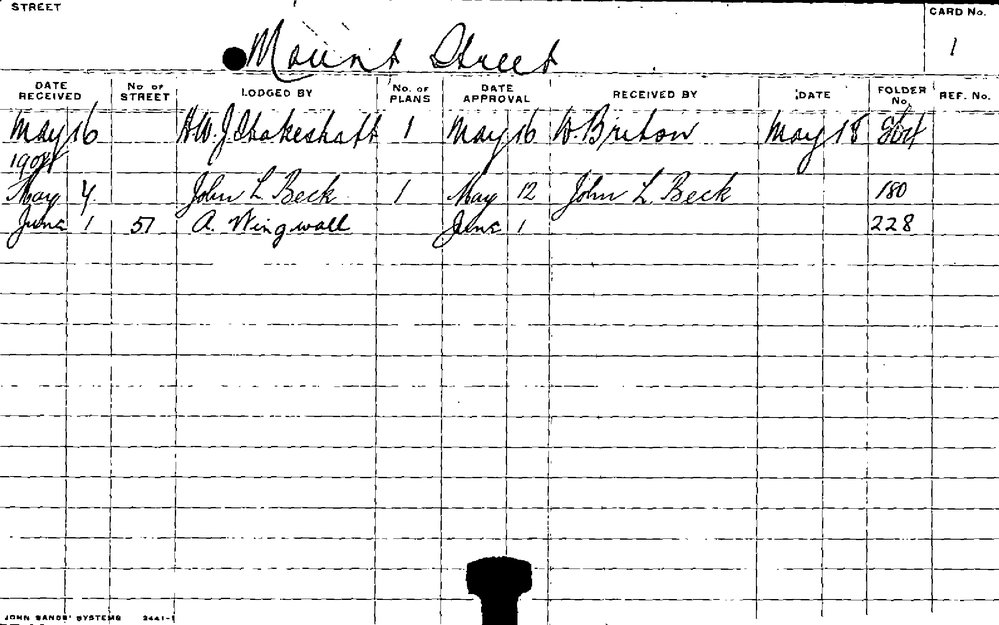 STREET
CARD No.
Mount Street
1
DATE RECEIVED No of STREET LODGED BY No. of PLANS DATE APPROVAL RECEIVED BY DATE FOLDER No. REF. No.
May 16 H.W.J. Shakeshaft 1 May 16 W. Briton May 18
May 4 John L Beck 1 May 12 John L. Beck 180
June 1 57 A. Wingwall June 1 228
JOHN SANDS' SYSTEMS 3441-1